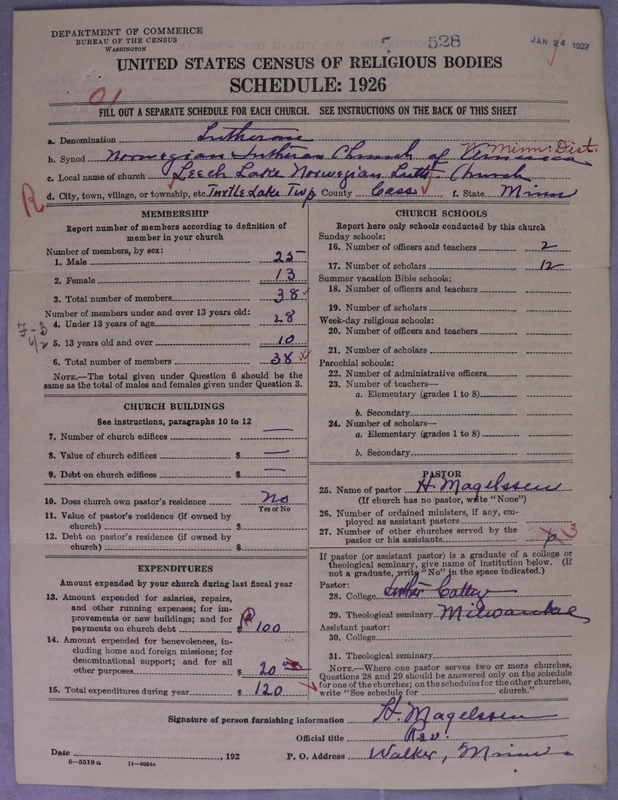 DEPARTMENT OF COMMERCE
BUREAU OF THE CENSUS
WASHINGTON
528
JAN 24 1927
UNITED STATES CENSUS OF RELIGIOUS BODIES
SCHEDULE: 1926
01
FILL OUT A SEPARATE SCHEDULE FOR EACH CHURCH. SEE INSTRUCTIONS ON THE BACK OF THIS SHEET
a. Denomination Lutheran
b. Synod Norwegian Lutheran Church of America Minn. Dist.
c. Local name of church Leech Lake Norwegian Luth. Church
d. City, town, village, or township, etc. Turtle Lake Twp County Cass f. State Minn
R
MEMBERSHIP
Report number of members according to definition of
member in your church
Number of members, by sex:
1. Male 25
2. Female 13
3. Total number of members 38
Number of members under and over 13 years old:
4. Under 13 years of age 28
5. 13 years old and over 10
6. Total number of members 38
NOTE.—The total given under Question 6 should be
same as the total of males and females given under Question 3.
CHURCH BUILDINGS
See instructions, paragraphs 10 to 12
7. Number of church edifices —
8. Value of church edifices $ —
9. Debt on church edifices $ —
10. Does church own pastor's residence No
Yes or No
11. Value of pastor's residence (if owned by
church) $
12. Debt on pastor's residence (if owned by
church) $
EXPENDITURES
Amount expended by your church during last fiscal year
13. Amount expended for salaries, repairs,
and other running expenses; for im-
provements or new buildings; and for
payments on church debt $ 100
14. Amount expended for benevolences, in-
cluding home and foreign missions; for
denominational support; and for all
other purposes $ 20
15. Total expenditures during year $ 120
CHURCH SCHOOLS
Report here only schools conducted by this church
Sunday schools:
16. Number of officers and teachers 2
17. Number of scholars 12
Summer vacation Bible schools:
18. Number of officers and teachers
19. Number of scholars
Week-day religious schools:
20. Number of officers and teachers
21. Number of scholars
Parochial schools:
22. Number of administrative officers
23. Number of teachers—
a. Elementary (grades 1 to 8)
b. Secondary
24. Number of scholars—
a. Elementary (grades 1 to 8)
b. Secondary
PASTOR
25. Name of pastor H. Magelssen
(If church has no pastor, write "None")
26. Number of ordained ministers, if any, em-
ployed as assistant pastors
27. Number of other churches served by the
pastor or his assistants 3
If pastor (or assistant pastor) is a graduate of a college or
theological seminary, give name of institution below. (If
not a graduate, write "No" in the space indicated.)
Pastor:
28. College Luther Colleg
29. Theological seminary Milwaukee
Assistant pastor:
30. College
31. Theological seminary
NOTE.—Where one pastor serves two or more churches,
Questions 28 and 29 should be answered only on the schedule
for one of the churches; on the schedules for the other churches,
write "See schedule for church."
Signature of person furnishing information H. Magelssen
Official title Rev.
Date , 192 P. O. Address Walker, Minn
8—5518a 11—9054